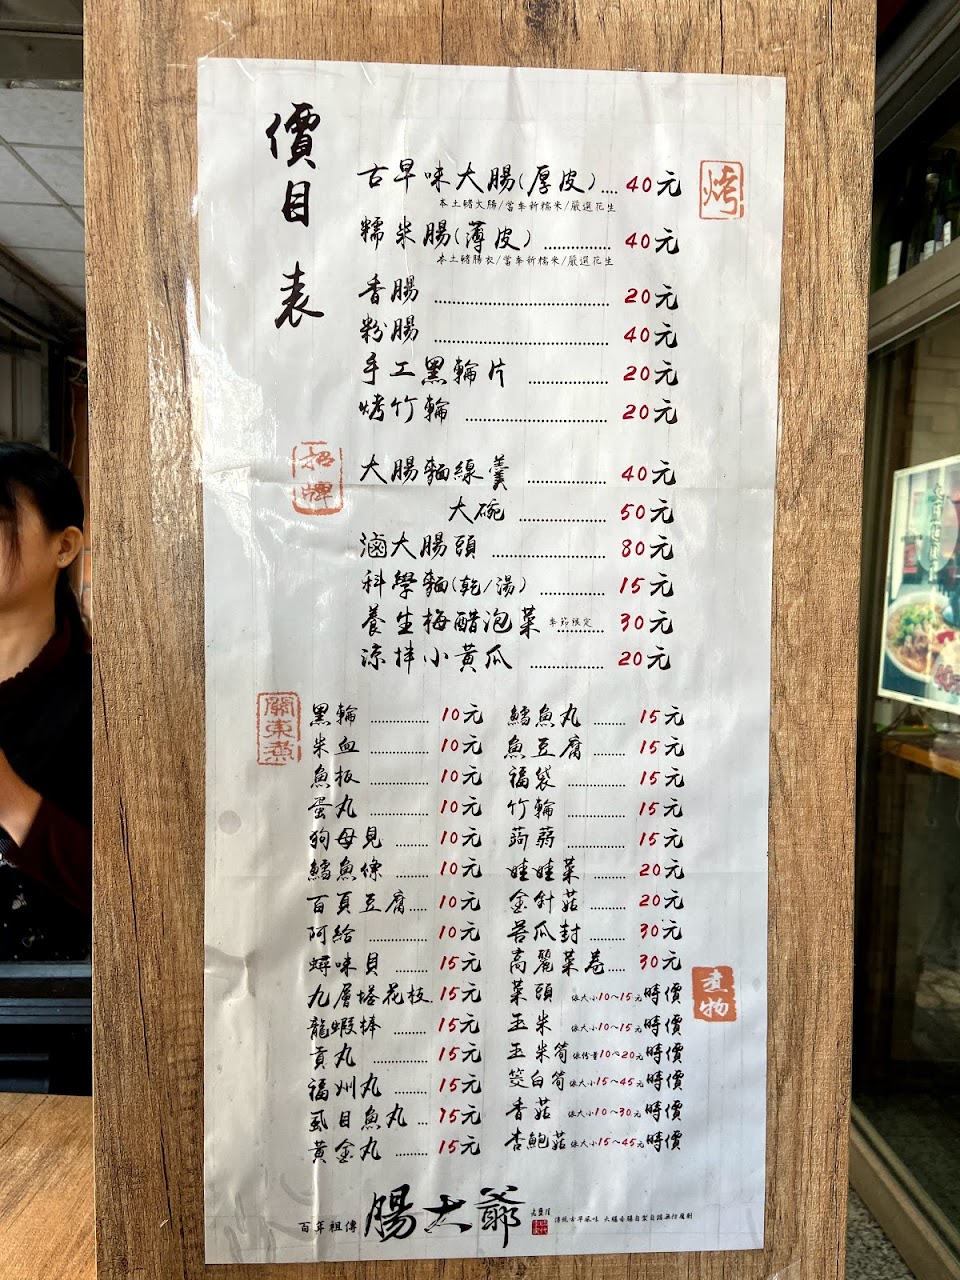 價目表
烤
古早味大腸(厚皮).... 40元
本土豬大腸/當季新糯米/嚴選花生
糯米腸(薄皮) ............ 40元
本土豬腸衣/當季新糯米/嚴選花生
香腸 ............ 20元
粉腸 ............ 40元
手工黑輪片 ............ 20元
烤竹輪 ............ 20元
招牌
大腸麵線羹 ............ 40元
大碗 ............ 50元
滷大腸頭 ............ 80元
科學麵(乾/湯) ............ 15元
養生梅醋泡菜 季節限定 ............ 30元
涼拌小黃瓜 ............ 20元
關東煮
黑輪 ............ 10元
米血 ............ 10元
魚板 ............ 10元
蛋丸 ............ 10元
狗母見 ........ 10元
鱈魚條 ........ 10元
百頁豆腐..... 10元
阿給 ............ 10元
蟳味貝 ........ 15元
九層塔花枝. 15元
龍蝦棒 ........ 15元
貢丸 ............ 15元
福州丸 ........ 15元
虱目魚丸 ... 15元
黃金丸 ........ 15元
鱈魚丸 ........ 15元
魚豆腐 ........ 15元
福袋 ............ 15元
竹輪 ............ 15元
蒟蒻 ............ 15元
娃娃菜 ........ 20元
金針菇 ........ 20元
苦瓜封 ........ 30元
高麗菜卷..... 30元
煮物
菜頭 依大小10~15元時價
玉米 依大小10~15元時價
玉米筍依份量10~20元時價
筊白筍依大小15~45元時價
香菇 依大小10~30元時價
杏鮑菇依大小15~45元時價
百年祖傳 腸大爺
傳統古早風味 大腸香腸自製自誥無防腐劑